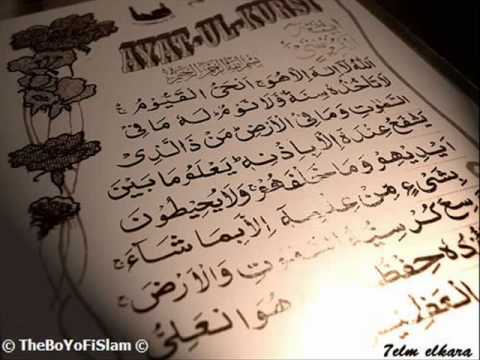 AYAT-UL-KURSI
بسم الله الرحمن الرحيم
اَللّٰهُ لَآ اِلٰهَ اِلَّا هُوَ اَلْحَيُّ الْقَيُّوْمُ
لَا تَأْخُذُهٗ سِنَةٌ وَّلَا نَوْمٌ لَهٗ مَا فِي
السَّمٰوٰتِ وَمَا فِي الْاَرْضِ مَنْ ذَا الَّذِيْ
يَشْفَعُ عِنْدَهٗ اِلَّا بِاِذْنِهٖ يَعْلَمُ مَا بَيْنَ
اَيْدِيْهِمْ وَمَا خَلْفَهُمْ وَلَا يُحِيْطُوْنَ
بِشَيْءٍ مِّنْ عِلْمِهٖٓ اِلَّا بِمَا شَآءَ
كُرْسِيُّهُ السَّمٰوٰتِ وَالْاَرْضَ
هُوَ الْعَلِيُّ
الْعَظِيْمُ
© TheBoYoFiSlam ©
7elm elkara